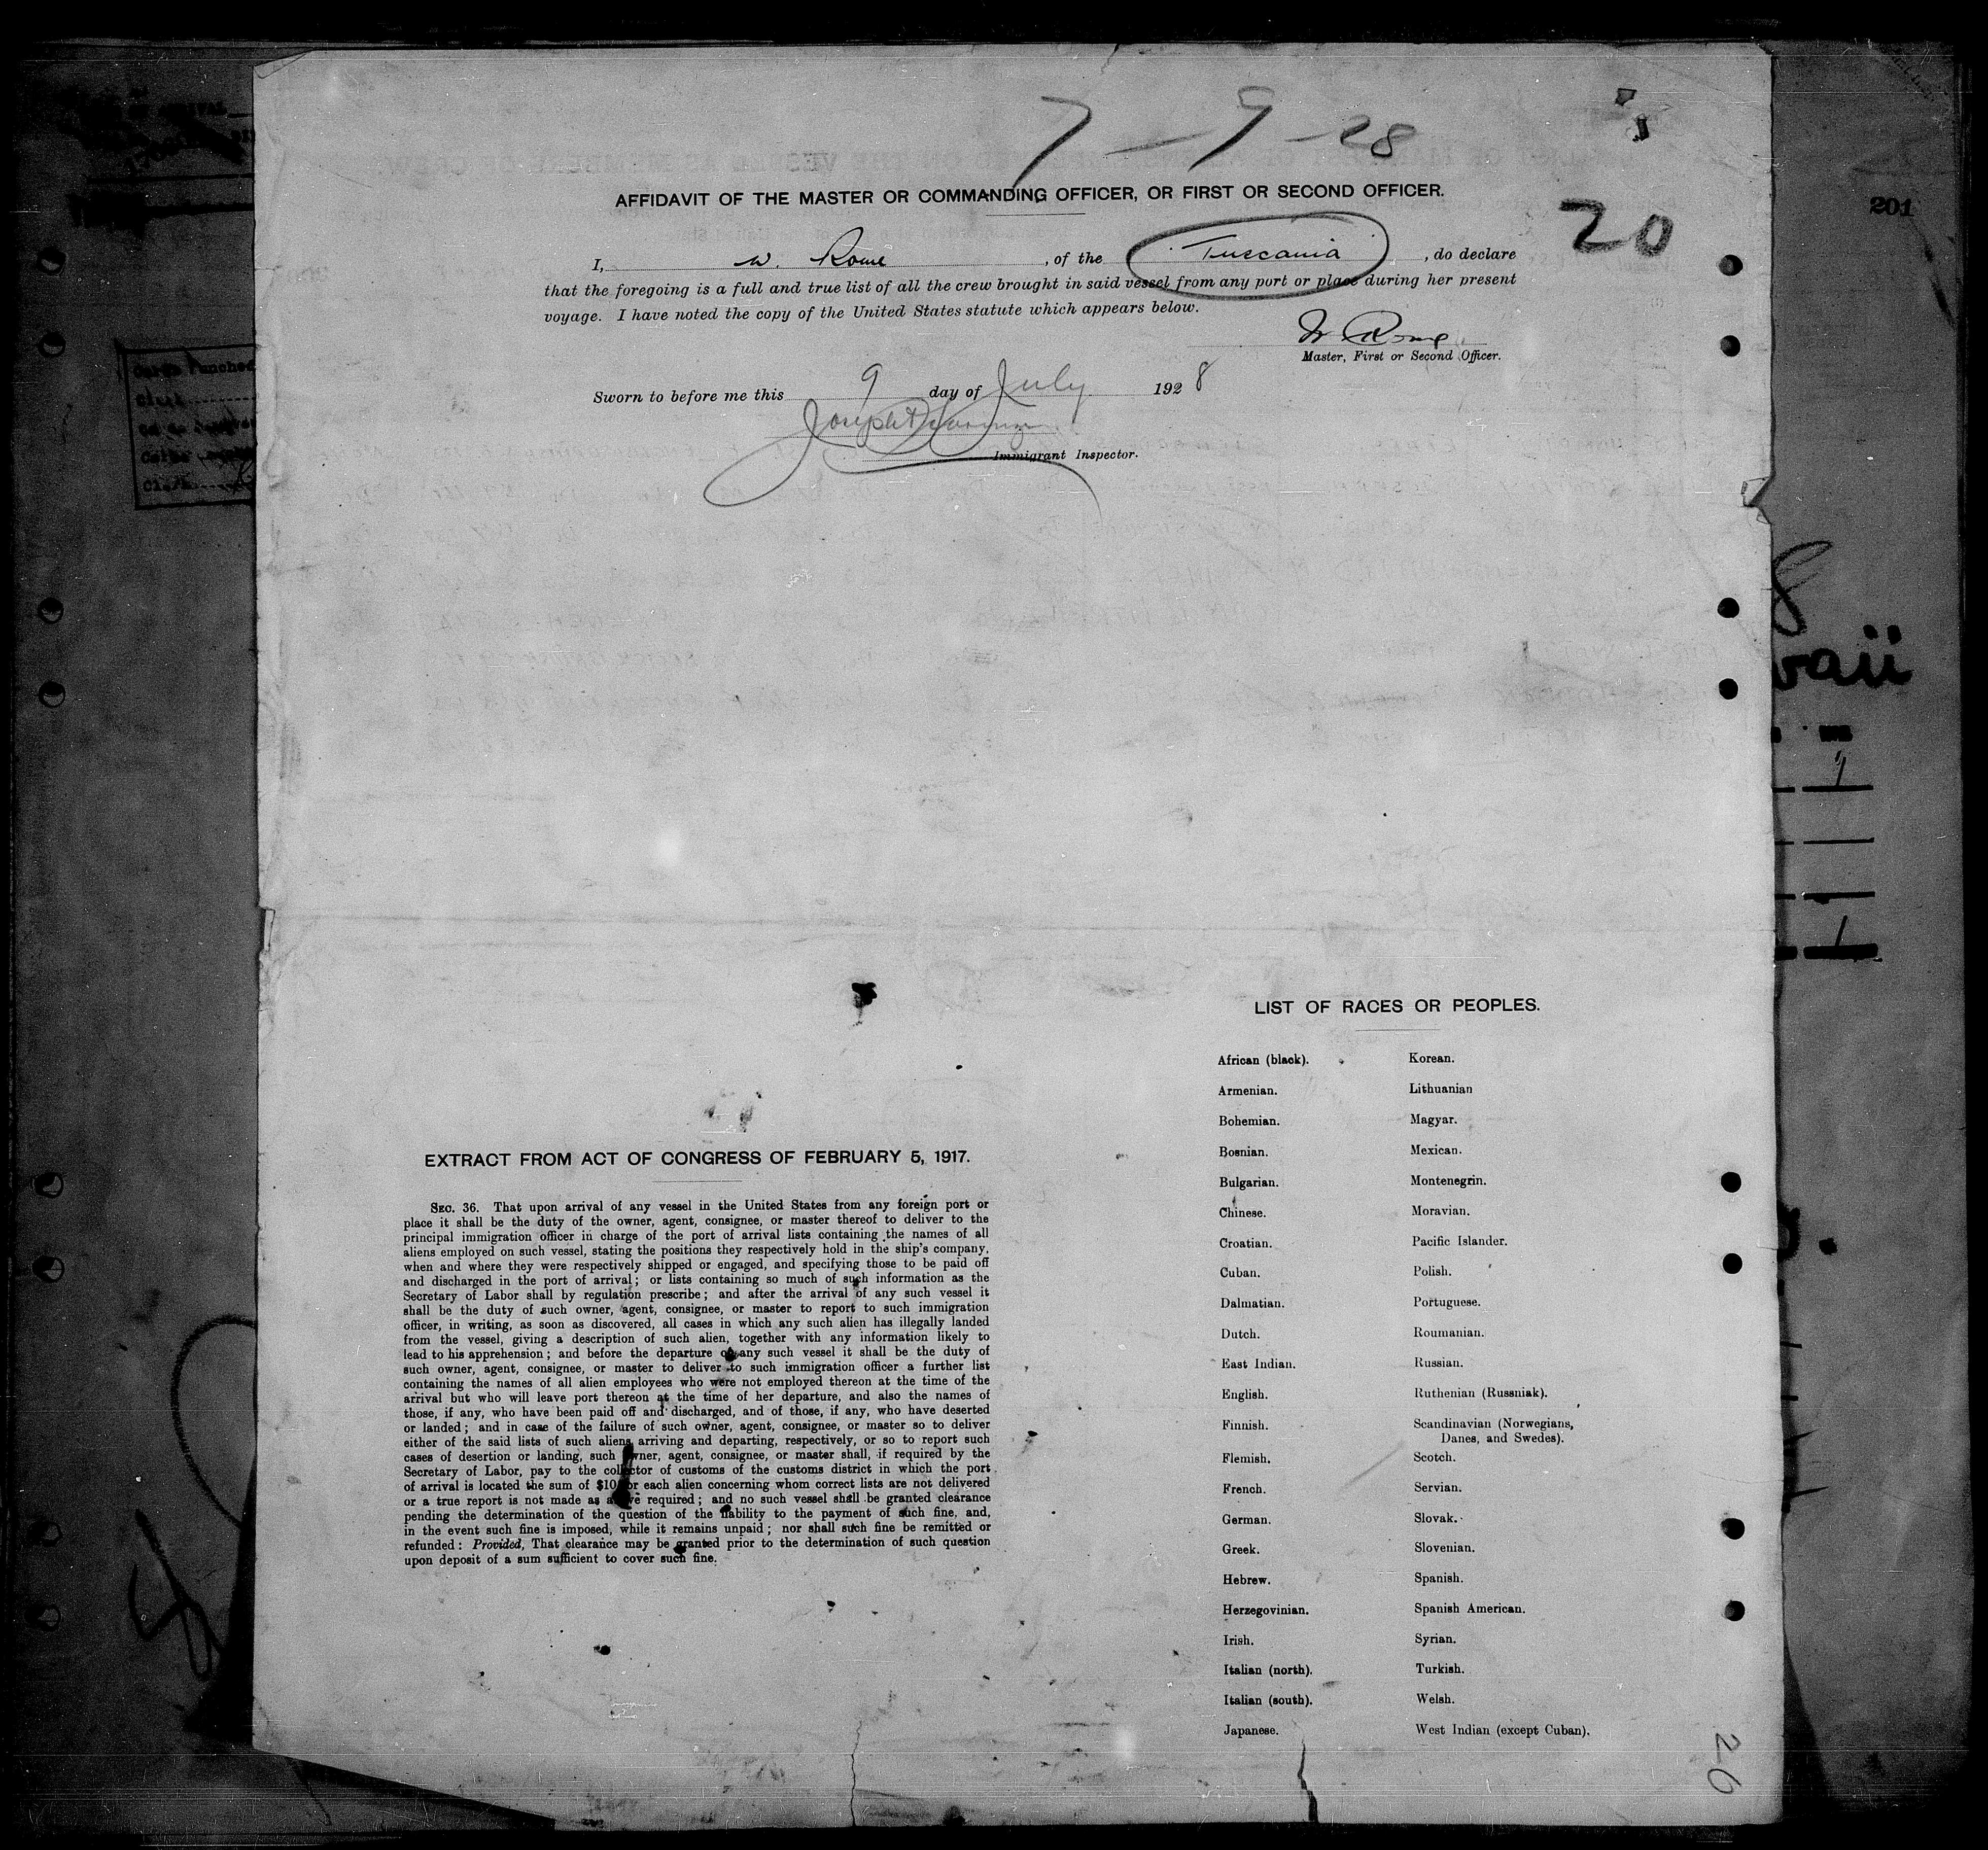 7-9-28
AFFIDAVIT OF THE MASTER OR COMMANDING OFFICER, OR FIRST OR SECOND OFFICER.
20
201
I, W. Rome, of the Tuscania, do declare
that the foregoing is a full and true list of all the crew brought in said vessel from any port or place during her present
voyage. I have noted the copy of the United States statute which appears below.
W. Rome
Master, First or Second Officer.
Sworn to before me this 9 day of July 1928
Joseph
Immigrant Inspector.
LIST OF RACES OR PEOPLES.
African (black).
Armenian.
Bohemian.
Bosnian.
Bulgarian.
Chinese.
Croatian.
Cuban.
Dalmatian.
Dutch.
East Indian.
English.
Finnish.
Flemish.
French.
German.
Greek.
Hebrew.
Herzegovinian.
Irish.
Italian (north).
Italian (south).
Japanese.
Korean.
Lithuanian
Magyar.
Mexican.
Montenegrin.
Moravian.
Pacific Islander.
Polish.
Portuguese.
Roumanian.
Russian.
Ruthenian (Russniak).
Scandinavian (Norwegians,
Danes, and Swedes).
Scotch.
Servian.
Slovak.
Slovenian.
Spanish.
Spanish American.
Syrian.
Turkish.
Welsh.
West Indian (except Cuban).
EXTRACT FROM ACT OF CONGRESS OF FEBRUARY 5, 1917.
SEC. 36. That upon arrival of any vessel in the United States from any foreign port or
place it shall be the duty of the owner, agent, consignee, or master thereof to deliver to the
principal immigration officer in charge of the port of arrival lists containing the names of all
aliens employed on such vessel, stating the positions they respectively hold in the ship's company,
when and where they were respectively shipped or engaged, and specifying those to be paid off
and discharged in the port of arrival; or lists containing so much of such information as the
Secretary of Labor shall by regulation prescribe; and after the arrival of any such vessel it
shall be the duty of such owner, agent, consignee, or master to report to such immigration
officer, in writing, as soon as discovered, all cases in which any such alien has illegally landed
from the vessel, giving a description of such alien, together with any information likely to
lead to his apprehension; and before the departure of any such vessel it shall be the duty of
such owner, agent, consignee, or master to deliver to such immigration officer a further list
containing the names of all alien employees who were not employed thereon at the time of the
arrival but who will leave port thereon at the time of her departure, and also the names of
those, if any, who have been paid off and discharged, and of those, if any, who have deserted
or landed; and in case of the failure of such owner, agent, consignee, or master so to deliver
either of the said lists of such aliens arriving and departing, respectively, or so to report such
cases of desertion or landing, such owner, agent, consignee, or master shall, if required by the
Secretary of Labor, pay to the collector of customs of the customs district in which the port
of arrival is located the sum of $10 for each alien concerning whom correct lists are not delivered
or a true report is not made as above required; and no such vessel shall be granted clearance
pending the determination of the question of the liability to the payment of such fine, and,
in the event such fine is imposed, while it remains unpaid; nor shall such fine be remitted or
refunded: Provided, That clearance may be granted prior to the determination of such question
upon deposit of a sum sufficient to cover such fine.
26